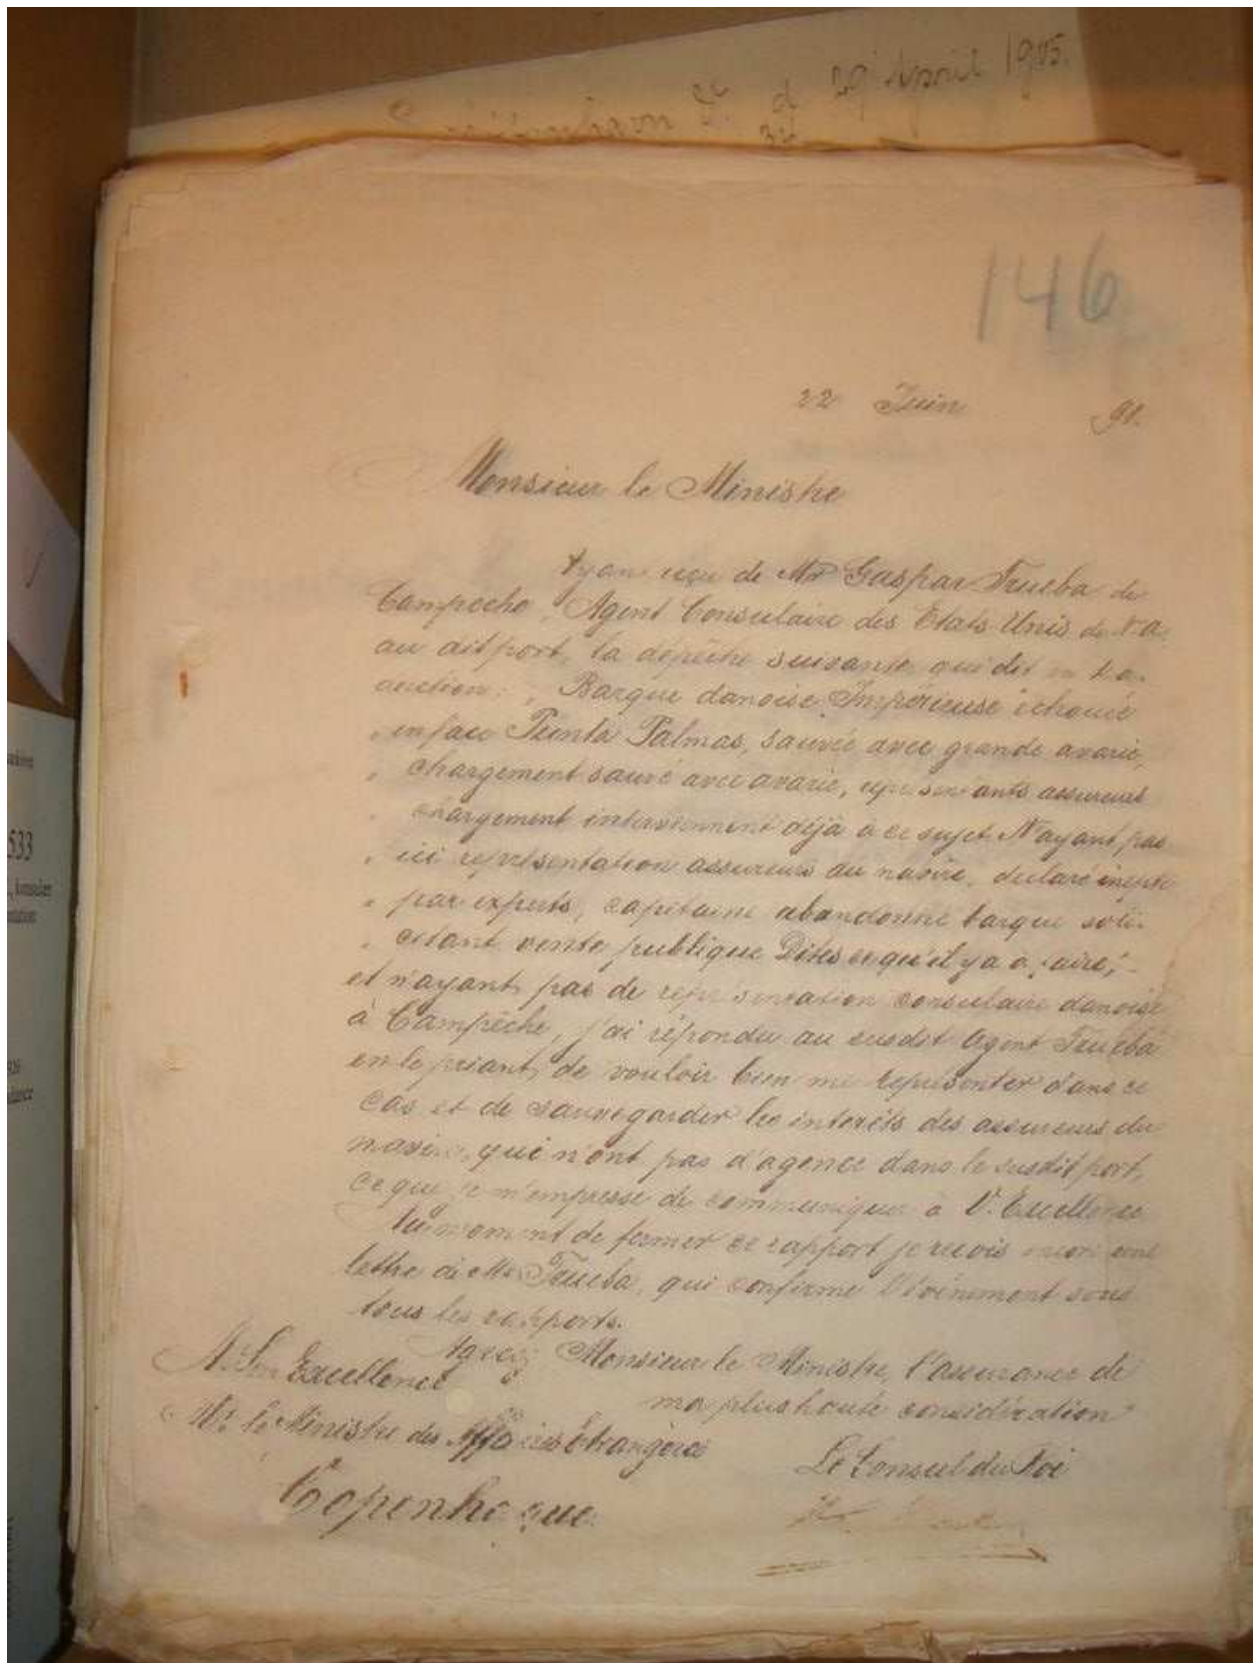 29 April 1905.
146
22 Juin 91.
Monsieur le Ministre
Ayant reçu de Mr Gaspar Trueba de
Campeche, Agent Consulaire des Etats Unis de N. A.
au dit port, la dépêche suivante, qui dit en tra-
duction: „Barque danoise Impérieuse échouée
„ en face Punta Palmas, sauvée avec grande avarie,
„ chargement sauvé avec avarie, représentants assureurs
„ chargement interviennent déjà à ce sujet. N'ayant pas
„ ici représentation assureurs du navire, declaré inepte
„ par experts, capitaine abandonne barque soli-
„ citant vente publique Dites ce qu'il y a à faire;"
et n'ayant pas de représentation consulaire danoise
à Campêche, j'ai répondu au susdit Agent Trueba
en le priant, de vouloir bien me représenter dans ce
cas et de sauvegarder les interêts des assureurs du
navire, qui n'ont pas d'agence dans le susdit port,
ce que je m'empresse de communiquer à V. Excellence
Au moment de fermer ce rapport je reçois encore une
lettre de Mr Trueba, qui confirme l'événiment sous
tous les rapports.
Agreez Monsieur le Ministre, l'assurance de
ma plus haute considération
A Son Excellence
Mr. le Ministre des Affaires Etrangères
Le Consul du Roi
Copenhague.
533